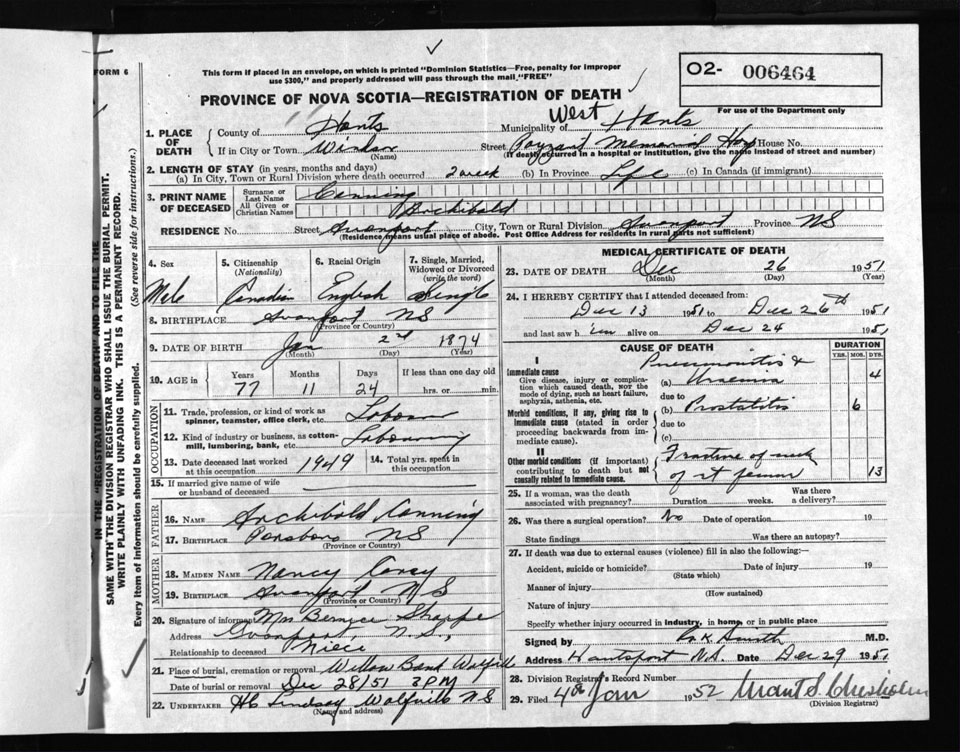 FORM 6
This form if placed in an envelope, on which is printed "Dominion Statistics—Free, penalty for improper
use $300," and properly addressed will pass through the mail "FREE"
O2- 006464
PROVINCE OF NOVA SCOTIA—REGISTRATION OF DEATH
For use of the Department only
1. PLACE OF DEATH
County of Hants Municipality of West Hants
If in City or Town Windsor Street Payzant Memorial Hosp House No.
(Name) (If death occurred in a hospital or institution, give the name instead of street and number)
2. LENGTH OF STAY (in years, months and days)
(a) In City, Town or Rural Division where death occurred 2 week (b) In Province Life (c) In Canada (if immigrant)
3. PRINT NAME OF DECEASED
Surname or Last Name Canning
All Given or Christian Names Archibald
RESIDENCE No. Street Avonport City, Town or Rural Division Avonport Province NS
(Residence means usual place of abode. Post Office Address for residents in rural parts not sufficient)
4. Sex 5. Citizenship (Nationality) 6. Racial Origin 7. Single, Married, Widowed or Divorced (write the word)
Male Canadian English Single
8. BIRTHPLACE Avonport NS
(Province or Country)
9. DATE OF BIRTH Jan 2nd 1874
(Month) (Day) (Year)
10. AGE in Years Months Days If less than one day old
77 11 24 hrs. or min.
OCCUPATION
11. Trade, profession, or kind of work as spinner, teamster, office clerk, etc. Laborer
12. Kind of industry or business, as cotton-mill, lumbering, bank, etc. Labouring
13. Date deceased last worked at this occupation 1949 14. Total yrs. spent in this occupation
15. If married give name of wife or husband of deceased
FATHER
16. NAME Archibald Canning
17. BIRTHPLACE Parsboro NS
(Province or Country)
MOTHER
18. MAIDEN NAME Nancy
19. BIRTHPLACE Avonport NS
(Province or Country)
20. Signature of informant Mrs Bernyce Sharpe
Address Avonport, N.S.,
Relationship to deceased Niece
21. Place of burial, cremation or removal Willow Bank Wolfville
Date of burial or removal Dec 28/51 3 PM
22. UNDERTAKER HC Lindsay Wolfville NS
(Name and address)
MEDICAL CERTIFICATE OF DEATH
23. DATE OF DEATH Dec 26 1951
(Month) (Day) (Year)
24. I HEREBY CERTIFY that I attended deceased from:
Dec 13 1951 to Dec 26th 1951
and last saw h im alive on Dec 24 1951
CAUSE OF DEATH DURATION
YRS. MOS. DYS.
I
Immediate cause Pneumonitis &
Give disease, injury or complication which caused death, not the mode of dying, such as heart failure, asphyxia, asthenia, etc.
(a) Uraemia 4
due to
Morbid conditions, if any, giving rise to immediate cause (stated in order proceeding backwards from immediate cause).
(b) Prostatitis 6
due to
(c)
II
Other morbid conditions (if important) contributing to death but not causally related to immediate cause.
Fracture of neck
of rt femur 13
25. If a woman, was the death associated with pregnancy? Duration weeks. Was there a delivery?
26. Was there a surgical operation? No Date of operation 19
State findings Was there an autopsy?
27. If death was due to external causes (violence) fill in also the following:—
Accident, suicide or homicide? Date of injury 19
(State which)
Manner of injury
(How sustained)
Nature of injury
Specify whether injury occurred in Industry, in home, or in public place
Signed by R.K. Smith M.D.
Address Hantsport N.S. Date Dec 29 1951
28. Division Registrar's Record Number
29. Filed 4th Jan 1952 Grant S. Chisholm
(Division Registrar)
IN THE "REGISTRATION OF DEATH" AND TO FILE THE
SAME WITH THE DIVISION REGISTRAR WHO SHALL ISSUE THE BURIAL PERMIT.
WRITE PLAINLY WITH UNFADING INK. THIS IS A PERMANENT RECORD.
Every item of information should be carefully supplied. (See reverse side for instructions.)